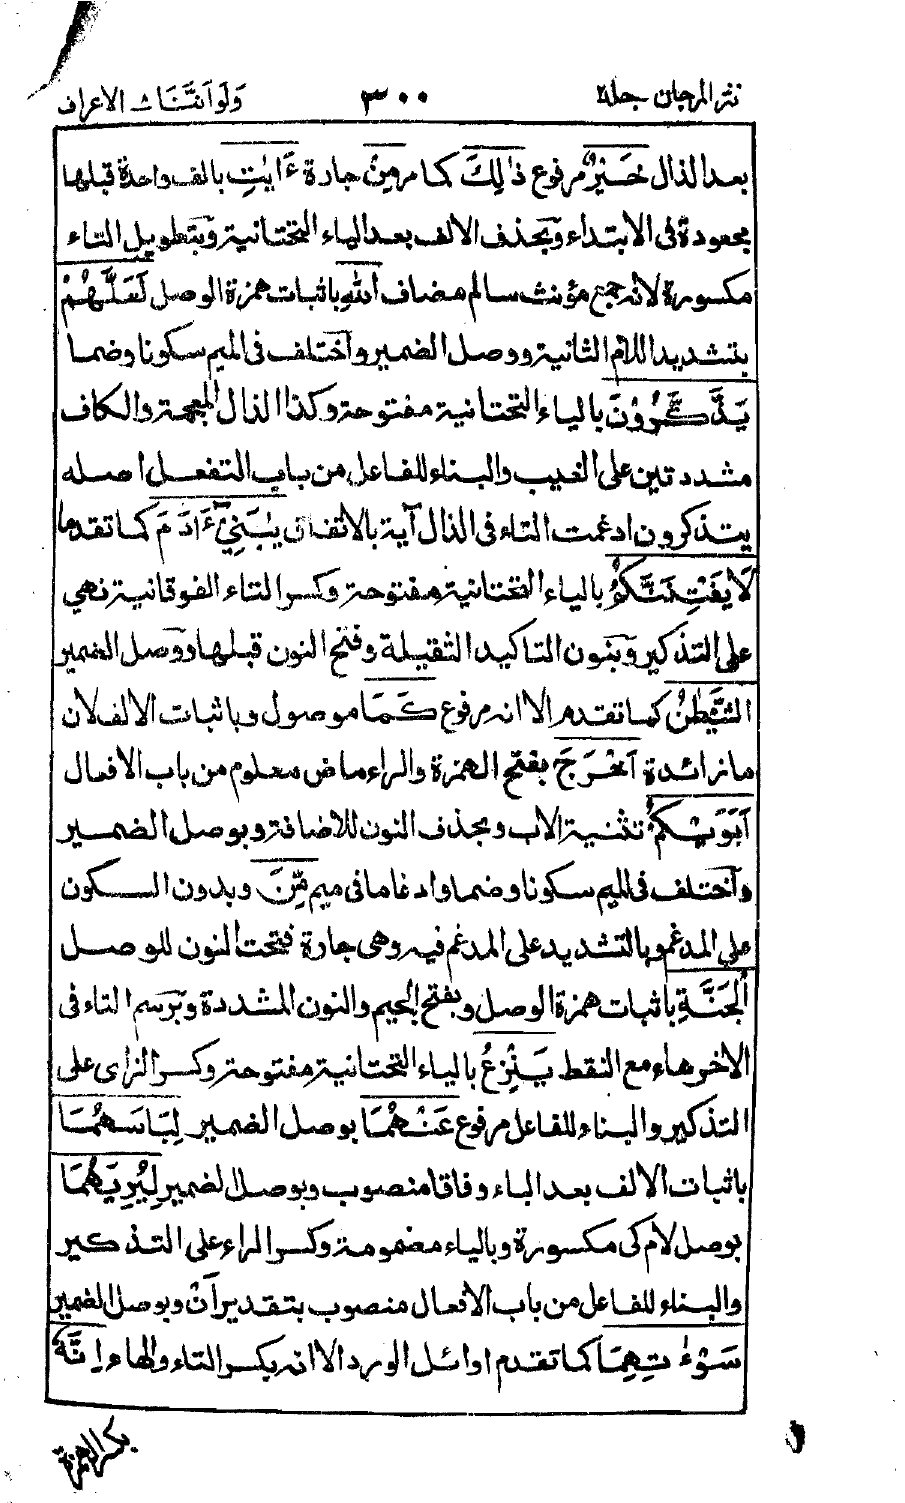 نثر المرجان جلد۲ ۳۰۰ ولو اننا ۸ الاعراف
بعد الذال خَيْرٌ مرفوع ذٰلِكَ كما مر مِنْ جارة ءَايٰتِ بالف واحدة قبلها
مجعودة فى الابتداء وبحذف الالف بعد الياء التحتانية وبتطويل التاء
مكسورة لانه جمع مؤنث سالم مضاف اللهِ باثبات همزة الوصل لَعَلَّهُمْ
بتشديد اللام الثانية ووصل الضمير واختلف فى الميم سكونا وضما
يَذَّكَّرُوْنَ بالياء التحتانية مفتوحة وكذا الذال المعجمة والكاف
مشددتين على الغيب والبناء للفاعل من باب التفعل اصله
يتذكرون ادغمت التاء فى الذال آية بالاتفاق يٰبَنِيْٓ ءَادَمَ كما تقدما
لَا يَفْتِنَنَّكُمُ بالياء التحتانية مفتوحة وكسر التاء الفوقانية نهي
على التذكير وبنون التاكيد الثقيلة وفتح النون قبلها ووصل الضمير
الشَّيْطٰنُ كما تقدم الا انه مرفوع كَمَا موصول وباثبات الالف لان
ما زائدة اَخْرَجَ بفتح الهمزة والراء ماض معلوم من باب الافعال
اَبَوَيْكُمْ تثنية الاب وبحذف النون للاضافة وبوصل الضمير
واختلف فى الميم سكونا وضما وادغاما فى ميم مِّنَ وبدون السكون
على المدغم وبالتشديد على المدغم فيه وهى جارة فتحت النون للوصل
الْجَنَّةِ باثبات همزة الوصل وبفتح الجيم والنون المشددة وبرسم التاء فى
الاخر هاء مع النقط يَنْزِعُ بالياء التحتانية مفتوحة وكسر الزاى على
التذكير والبناء للفاعل مرفوع عَنْهُمَا بوصل الضمير لِبَاسَهُمَا
باثبات الالف بعد الباء وفاقا منصوب وبوصل الضمير لِيُرِيَهُمَا
بوصل لام كى مكسورة وبالياء مضمومة وكسر الراء على التذكير
والبناء للفاعل من باب الافعال منصوب بتقدير اَنْ وبوصل الضمير
سَوْءٰتِهِمَا كما تقدم اوائل الورد الا انه بكسر التاء والهاء اِنَّهٗ
بكسر الهمزة